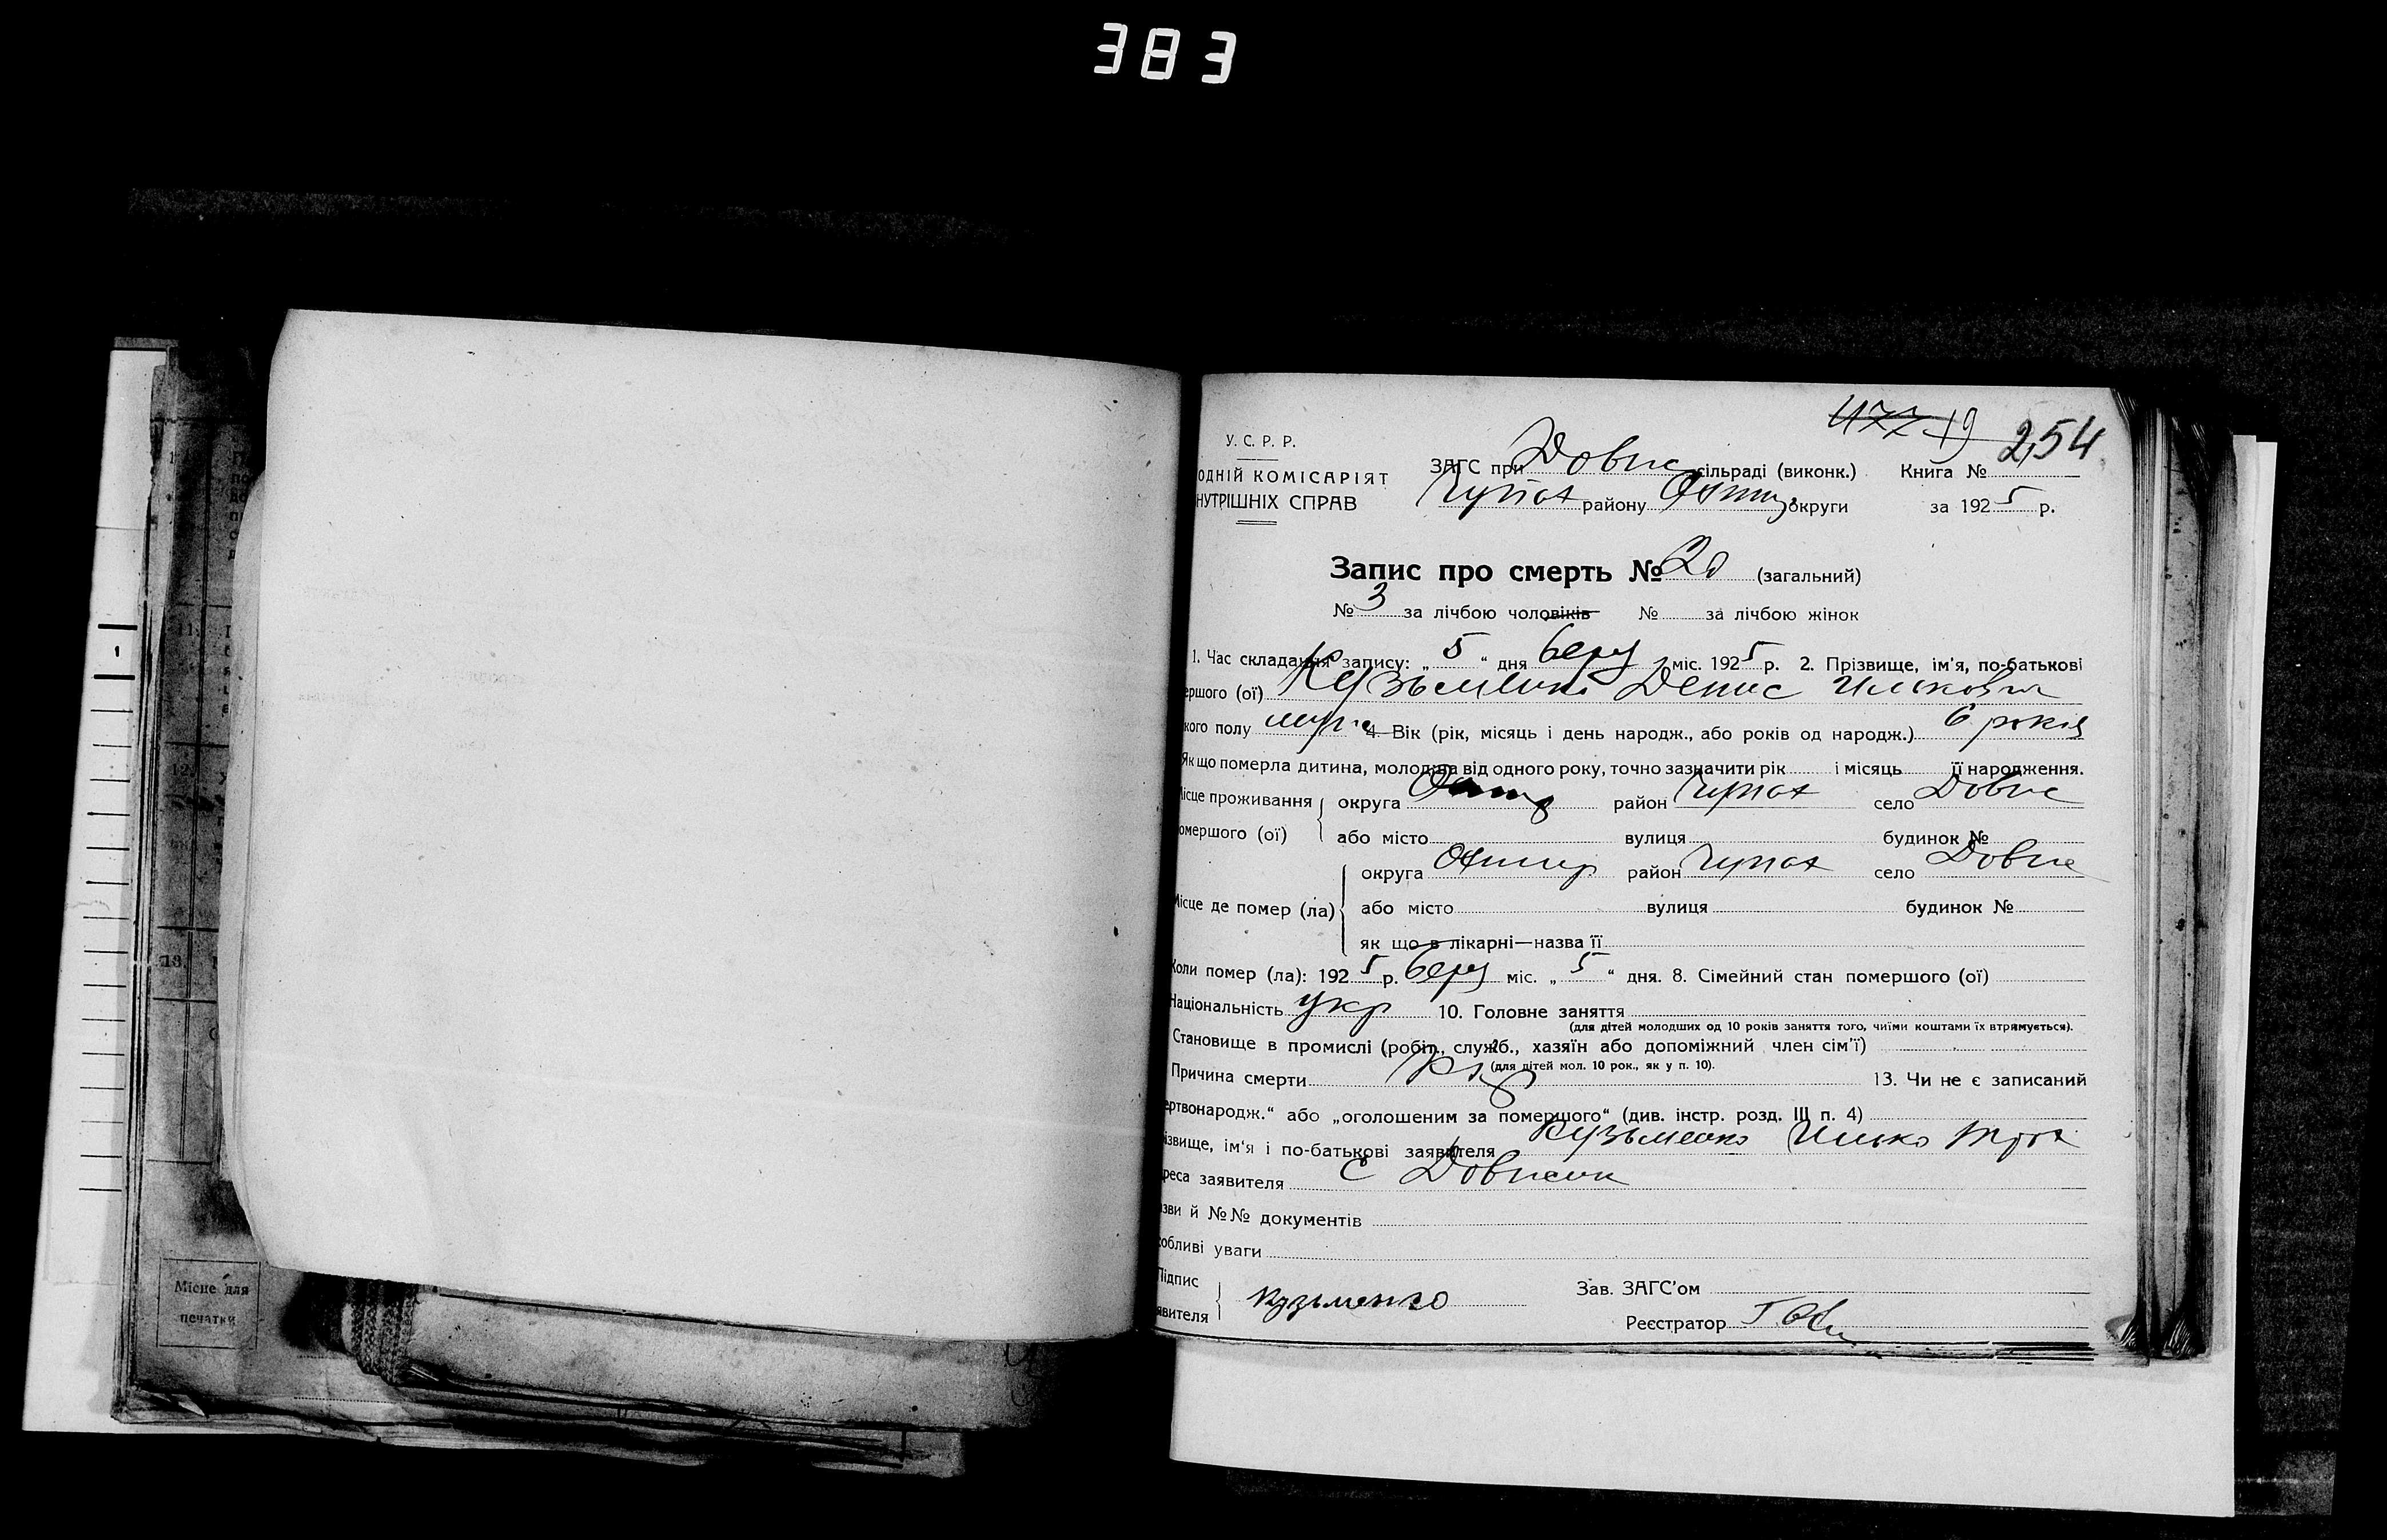 383
477 19 254
У. С. Р. Р.
ОДНІЙ КОМІСАРІЯТ
НУТРІШНІХ СПРАВ
ЗАГС при Довж сільраді (виконк.) Книга №
Чупах району Охтир округи за 1925 р.
Запис про смерть № 20 (загальний)
№ 3 за лічбою чоловіків № за лічбою жінок
1. Час складання запису: „ 5 “ дня берез міс. 1925 р. 2. Прізвище, ім'я, по-батькові
ершого (ої) Кузьменко Денис Ильков
кого полу муж 4. Вік (рік, місяць і день народж., або років од народж.) 6 років
Якщо померла дитина, молодша від одного року, точно зазначити рік і місяць її народження.
ісце проживання округа Охтир район Чупах село Довж
омершого (ої) або місто вулиця будинок №
округа Охтир район Чупах село Довж
ісце де помер (ла) або місто вулиця будинок №
як що в лікарні—назва її
Коли помер (ла): 1925 р. берез міс. „ 5 “ дня. 8. Сімейний стан помершого (ої)
Національність укр 10. Головне заняття
(для дітей молодших од 10 років заняття того, чиїми коштами їх втримується).
Становище в промислі (робіт., служб., хазяїн або допоміжний член сім'ї)
(для дітей мол. 10 рок., як у п. 10).
Причина смерти 13. Чи не є записаний
ертвонародж.“ або „оголошеним за помершого“ (див. інстр. розд. III п. 4)
ізвище, ім'я і по-батькові заявителя Кузьменко Илько
реса заявителя с Довжик
зви й №№ документів
обливі уваги
Підпис
явителя Кузьменко
Зав. ЗАГС'ом
Реєстратор
11.
12.
13.
Місце для
печатки
1